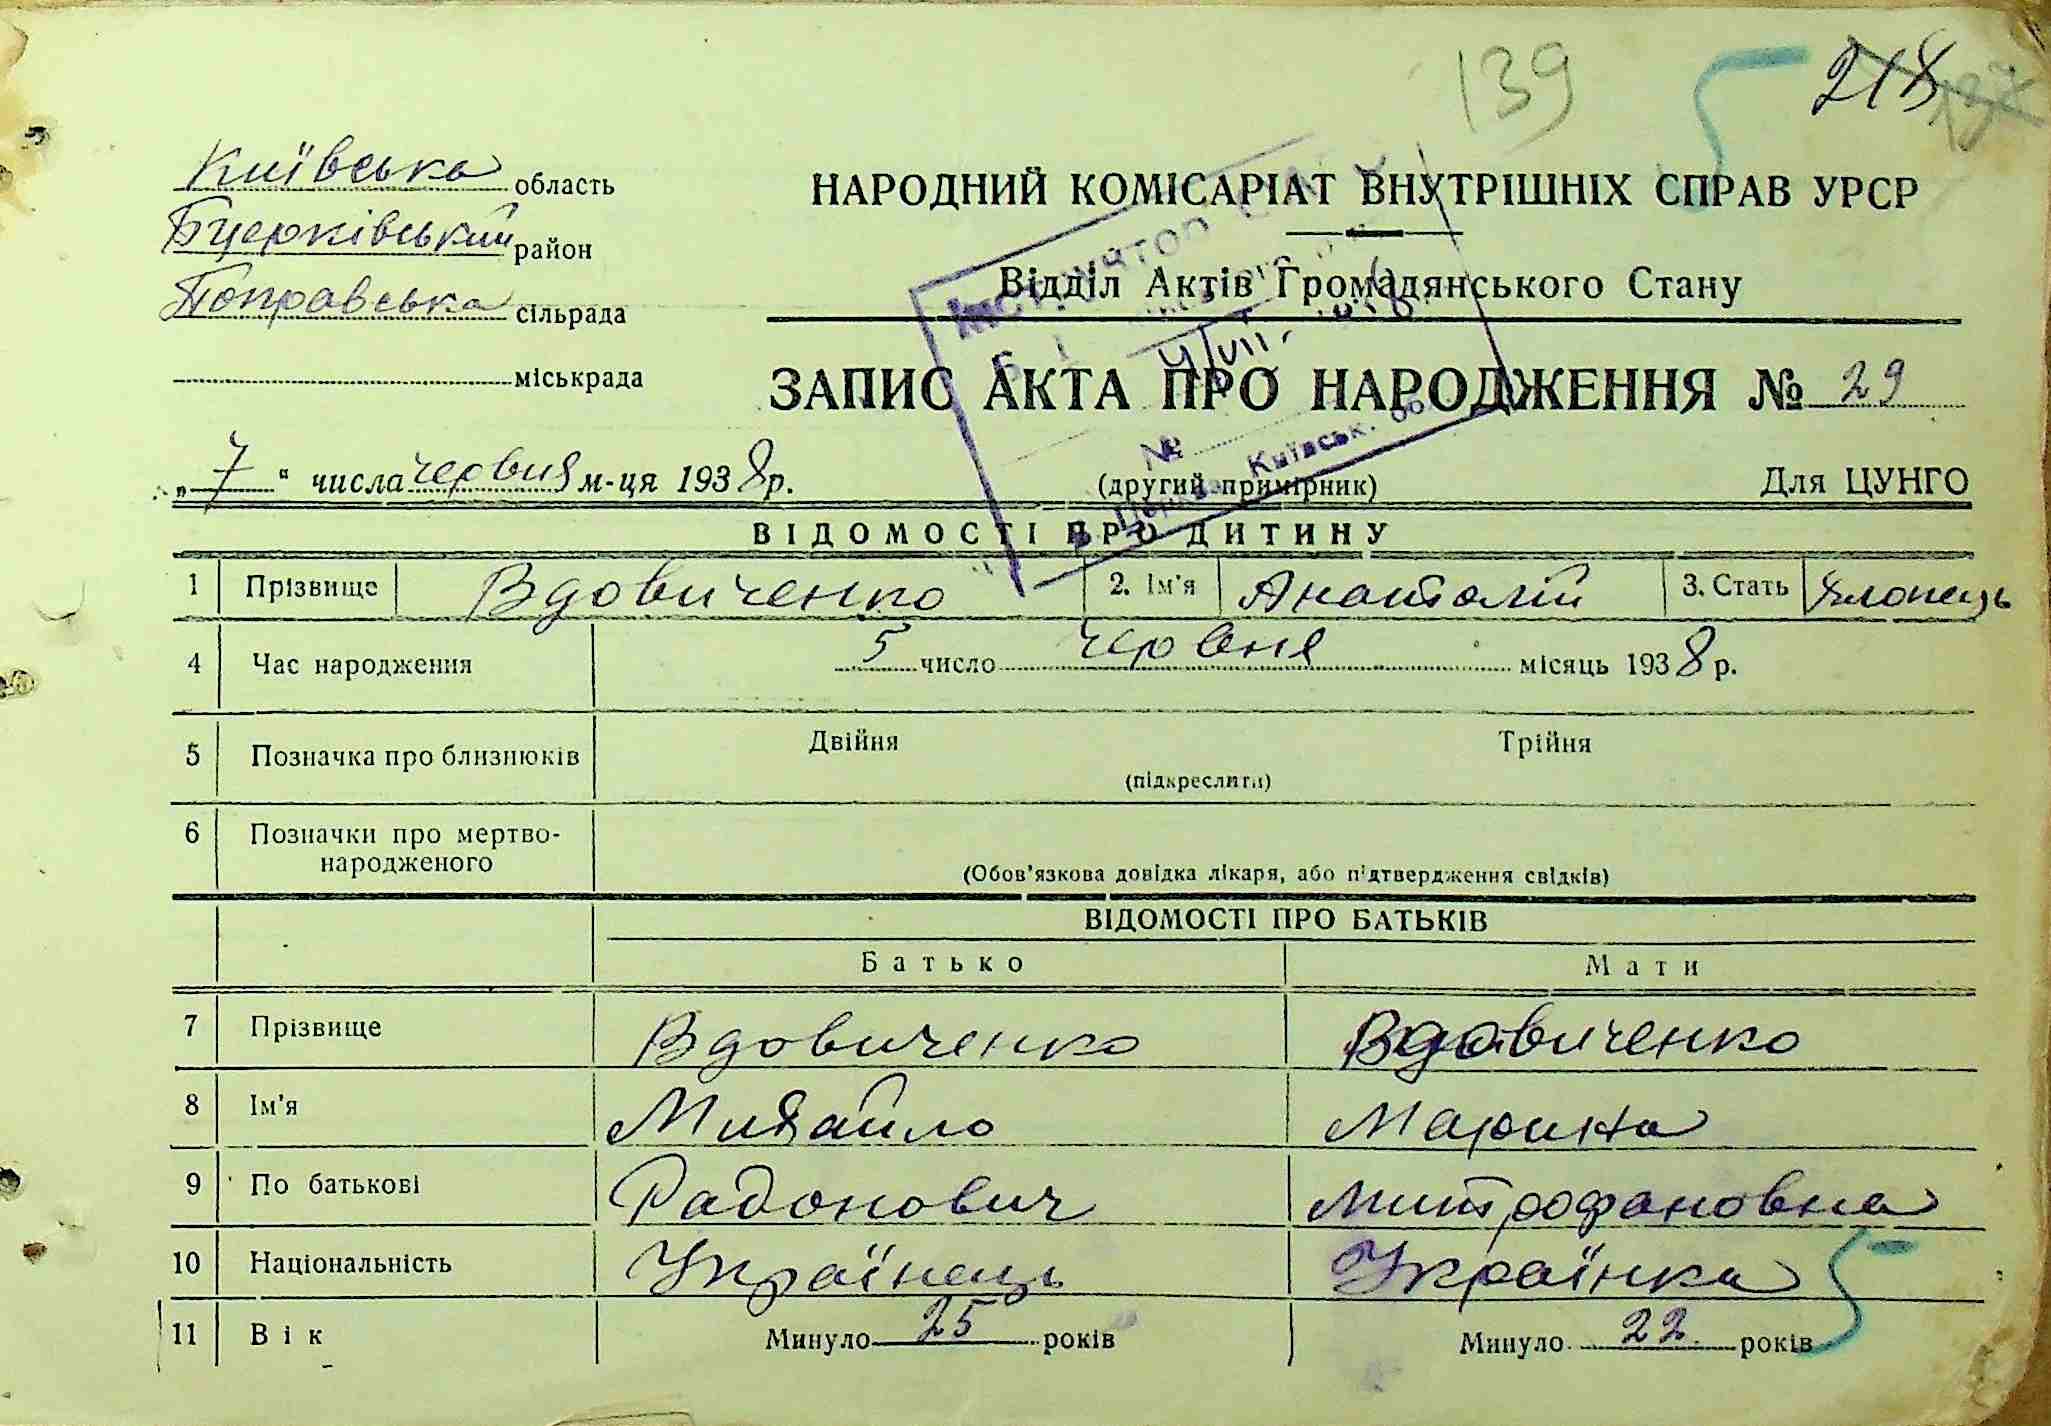 139 5 218
Київська область
Бцерківський район
Поправська сільрада
міськрада
НАРОДНИЙ КОМІСАРІАТ ВНУТРІШНІХ СПРАВ УРСР
Відділ Актів Громадянського Стану
ЗАПИС АКТА ПРО НАРОДЖЕННЯ № 29
„7“ числа червня м-ця 1938 р. (другий примірник) Для ЦУНГО
Інструктор
№
Київськ. обл.
ВІДОМОСТІ ПРО ДИТИНУ
1 Прізвище Вдовиченко 2. Ім'я Анатолій 3. Стать Хлопець
4 Час народження 5 число червня місяць 1938 р.
5 Позначка про близнюків Двійня Трійня
(підкреслити)
6 Позначки про мертво-
народженого
(Обов'язкова довідка лікаря, або підтвердження свідків)
ВІДОМОСТІ ПРО БАТЬКІВ
Батько Мати
7 Прізвище Вдовиченко Вдовиченко
8 Ім'я Михайло Марина
9 По батькові Радонович Митрофановна
10 Національність Українець Українка 5
11 Вік Минуло 25 років Минуло 22 років